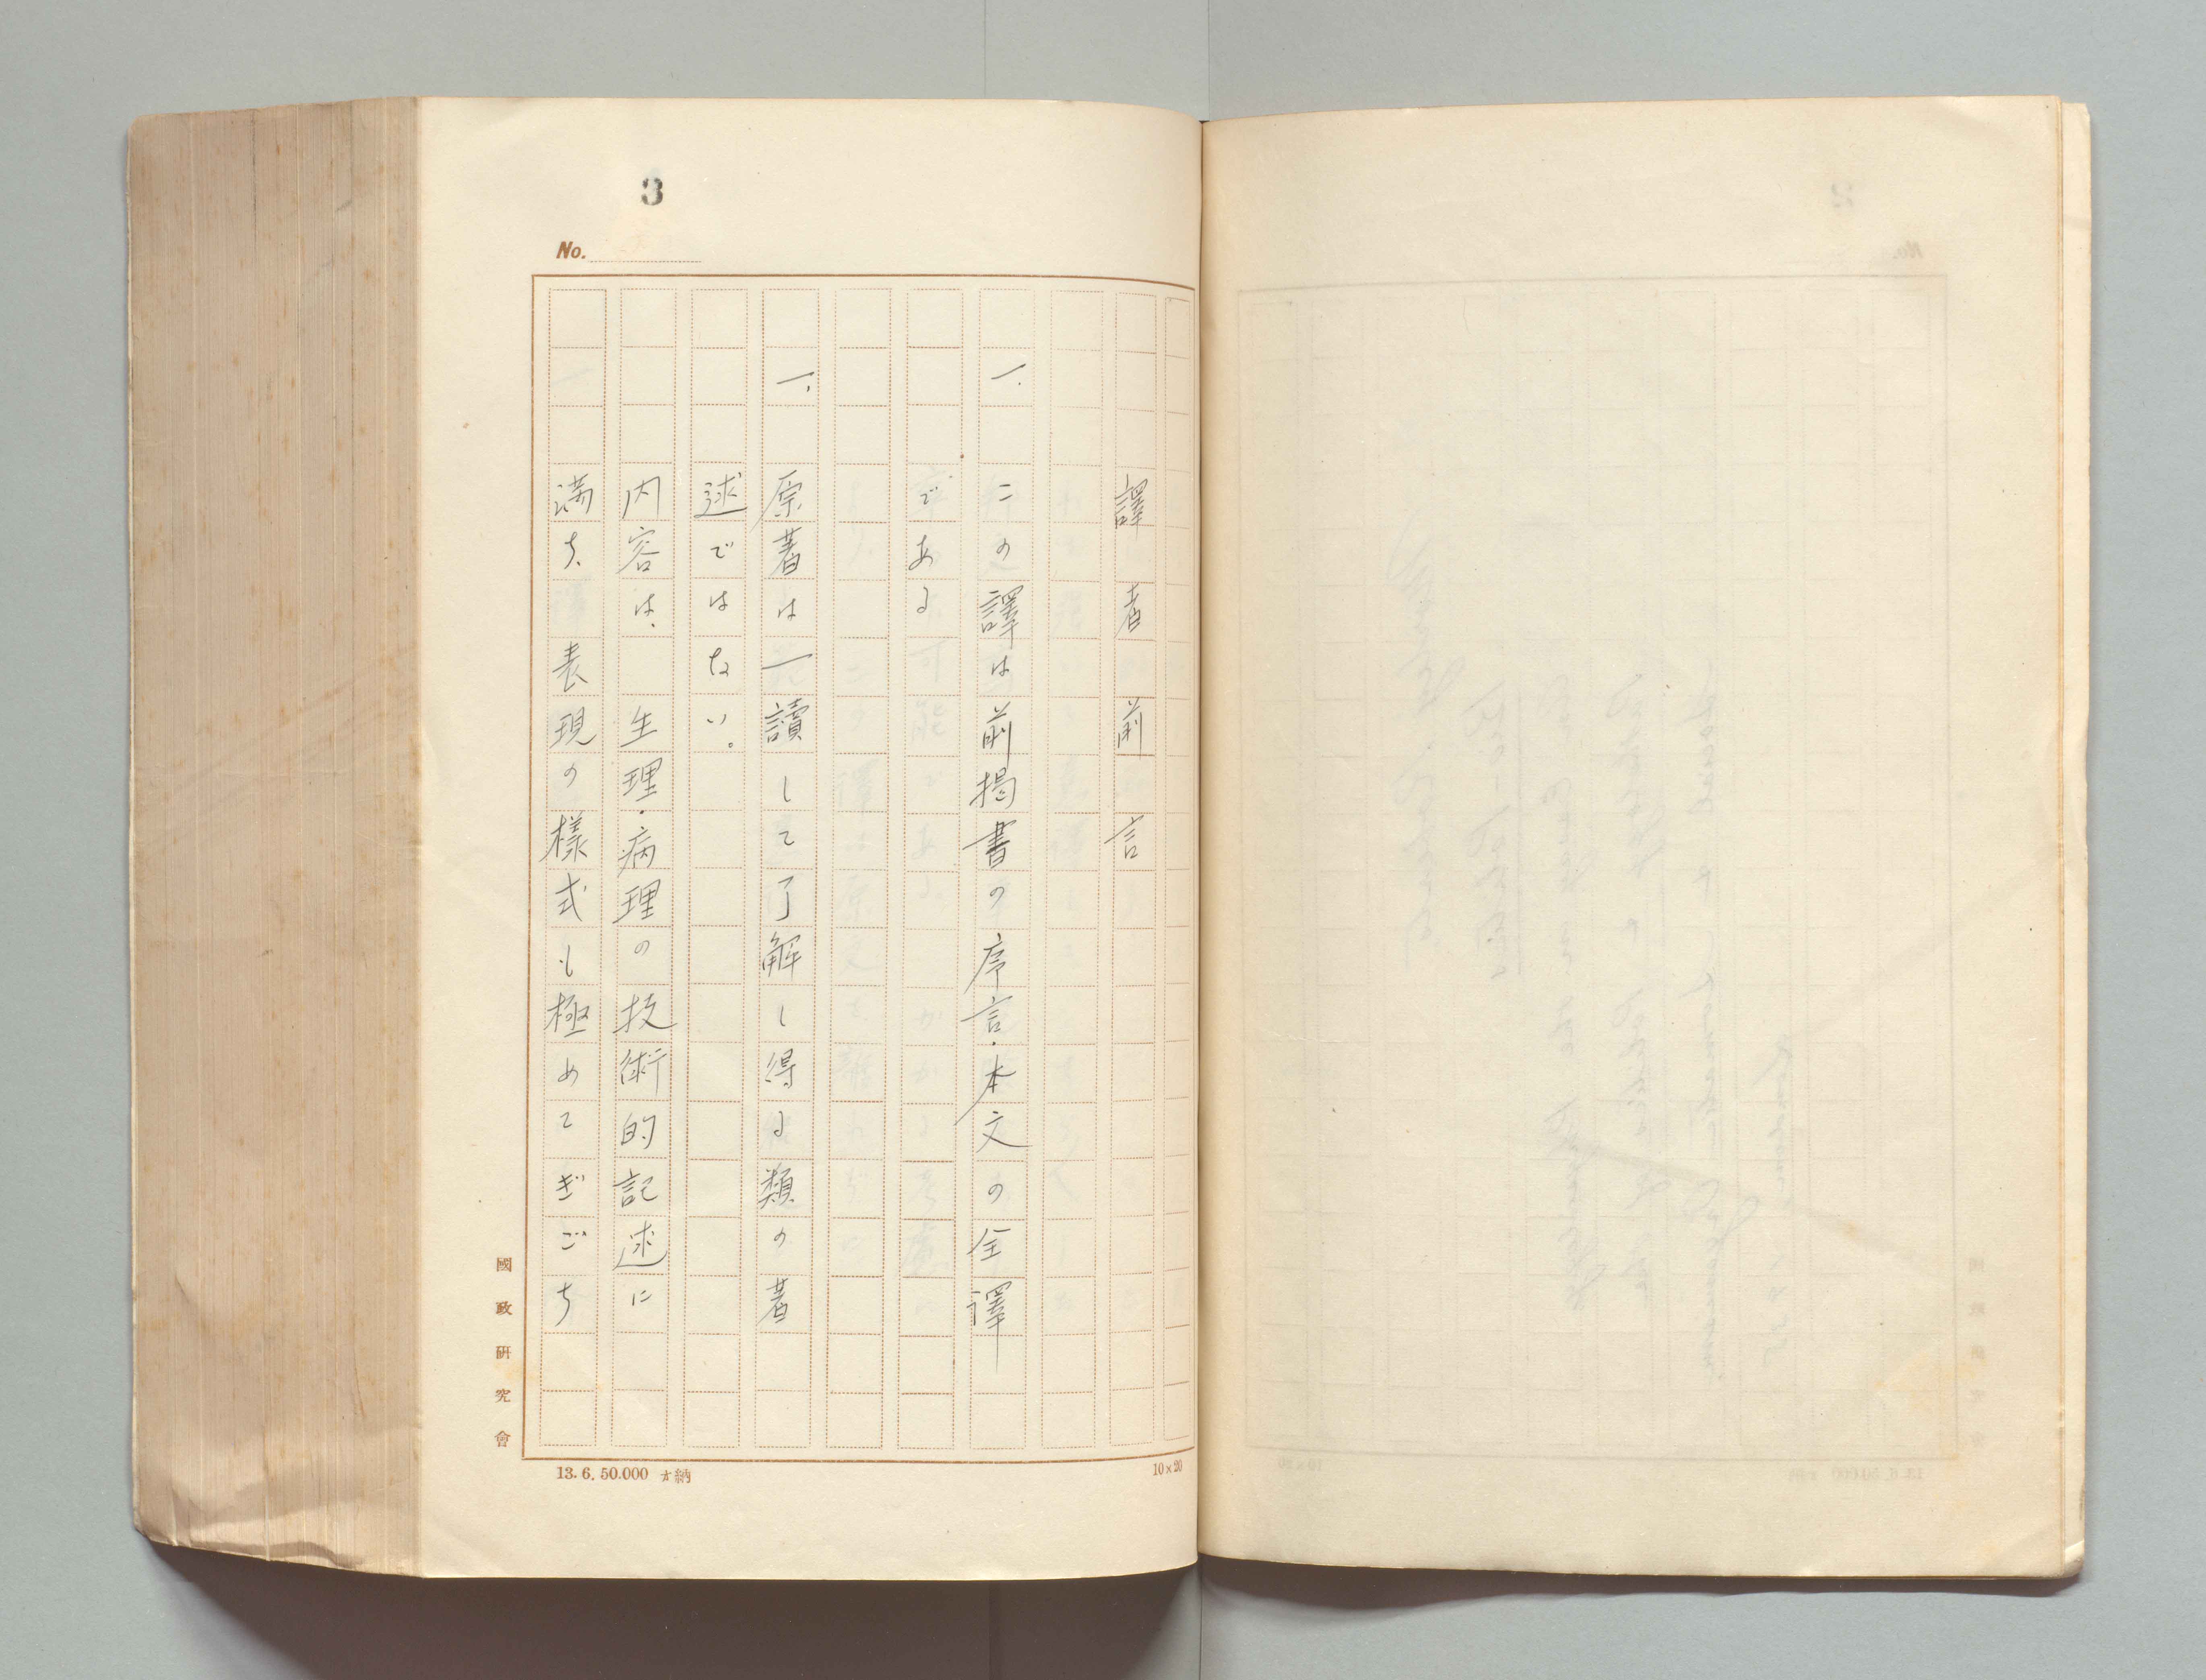 3
No.
譯者前言
一、この譯は前掲書の序言・本文の全譯
である
一、原著は一讀して了解し得る類の著
述ではない。
内容は、生理・病理の技術的記述に
満ち、表現の様式も極めてぎごち
國政研究會
13.6.50.000 納
10×20